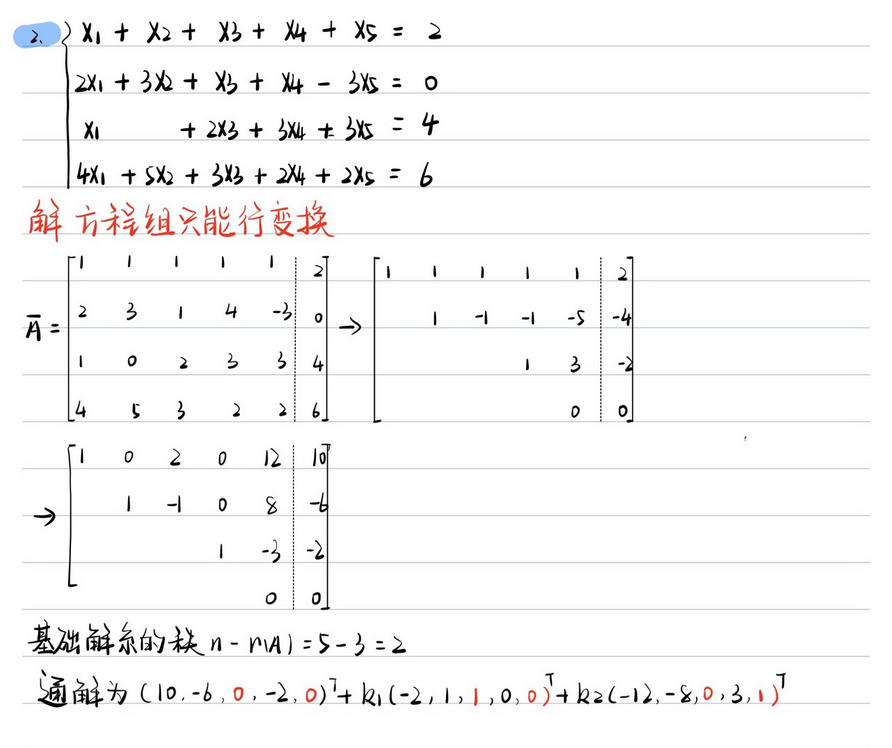 2. x1 + x2 + x3 + x4 + x5 = 2
2x1 + 3x2 + x3 + x4 - 3x5 = 0
x1 + 2x3 + 3x4 + 3x5 = 4
4x1 + 5x2 + 3x3 + 2x4 + 2x5 = 6
解方程组只能行变换
1 1 1 1 1 2 1 1 1 1 1 2
Ā = 2 3 1 4 -3 0 → 1 -1 -1 -5 -4
1 0 2 3 3 4 1 3 -2
4 5 3 2 2 6 0 0
1 0 2 0 12 10
→ 1 -1 0 8 -6
1 -3 -2
0 0
基础解系的秩 n - r(A) = 5 - 3 = 2
通解为 (10, -6, 0, -2, 0)ᵀ + k1(-2, 1, 1, 0, 0)ᵀ + k2(-12, -8, 0, 3, 1)ᵀ